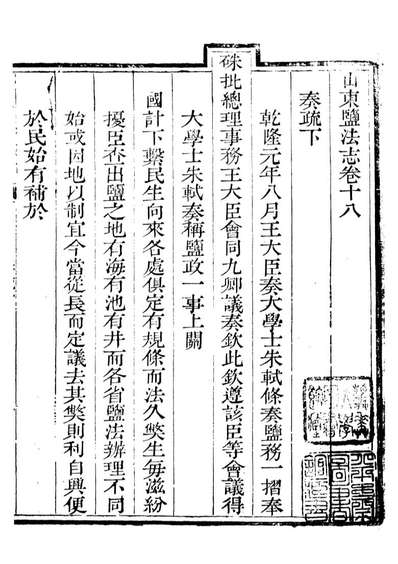 山東鹽法志卷十八
奏疏下
乾隆元年八月王大臣奏大學士朱軾條奏鹽務一摺奉
硃批總理事務王大臣會同九卿議奏欽此欽遵該臣等會議得
大學士朱軾奏稱鹽政一事上關
國計下繫民生向來各處俱定有規條而法久獘生毎滋紛
擾臣查出鹽之地有海有池有井而各省鹽法辦理不同
始或因地以制宜今當從長而定議去其獘則利自興便
於民始有補於